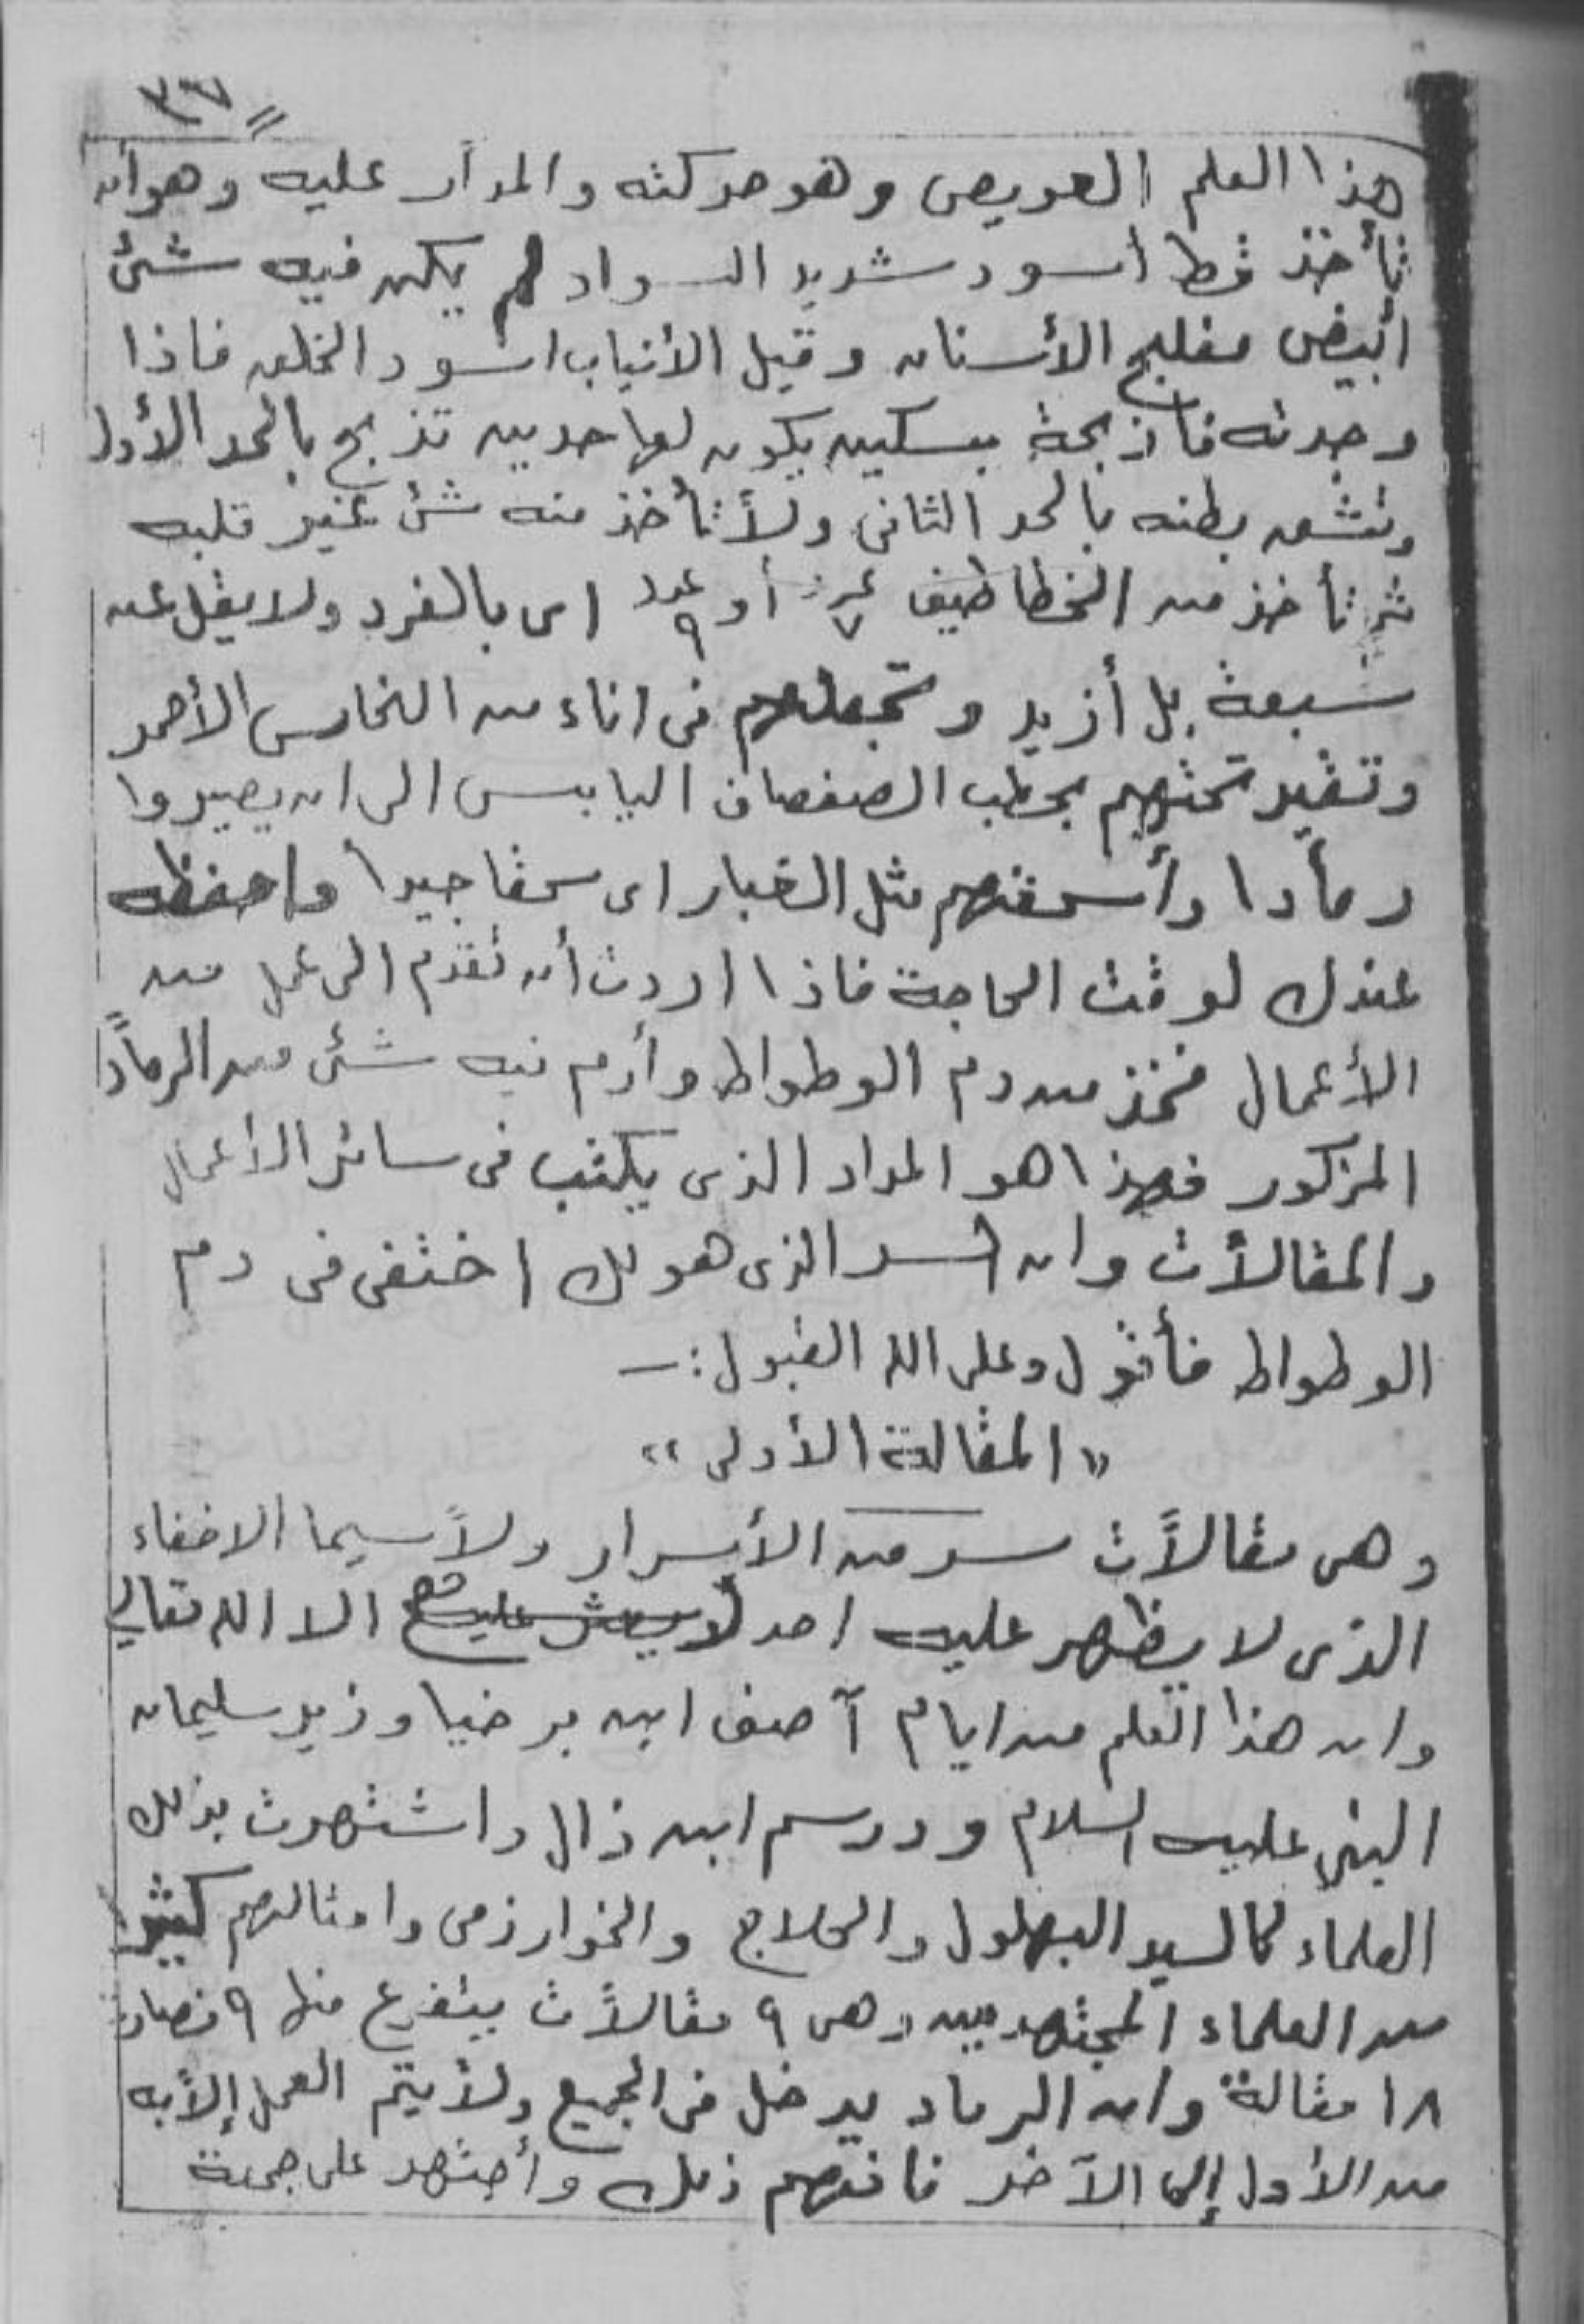 ٣٦٧
هذا العلم العويص وهو مركته والمدار عليه وهو أن
تأخذ قط أسود شديد السواد لم يكن فيه شئ
أبيض مفلج الأسنان وقيل الأنياب اسود الخلق فاذا
وجدته فاذبحة بسكين يكون لها حدين تذبح بالحد الأول
وتشق بطنه بالحد الثانى ولا تأخذ منه شئ غير قلبه
ثم تأخذ من الخطاطيف عدد ٧ أو عدد ٩ اى بالفرد ولا يقل عن
سبعة بل أزيد وتجعلهم فى اناء من النحاس الأحمر
وتقيد تحتهم بحطب الصفصاف اليابس الى ان يصيروا
رمادا وأسحقهم مثل الغبار اى سحقا جيدا واحفظه
عندك لوقت الحاجة فاذا اردت أن تقدم الى عمل من
الأعمال فخذ من دم الوطواط وأرم فيه شئ من الرماد
المزكور فهذا هو المداد الذى يكتب فى سائر الأعمال
والمقالات وان السر الذى هو لك اختفى فى دم
الوطواط فأقول وعلى الله القبول :—
« المقالة الأولى »
وهى مقالات سر من الأسرار ولا سيما الاخفاء
الذى لا يظهر عليه احد الا الله تعالى
وان هذا القلم من ايام آصف ابن برخيا وزير سليمان
النبى عليه السلام ورسم ابن زال واشتهرت بذلك
العلماء كالسيد البهلول والحلاج والخوارزمى وامثالهم كثير
من العلماء المجتهدين وهى ٩ مقالات يتفرع منها ٩ فصارت
١٨ مقالة وان الرماد يدخل فى الجميع ولا يتم العمل إلا به
من الأول إلى الآخر فافهم ذلك وأجتهد على جمعة